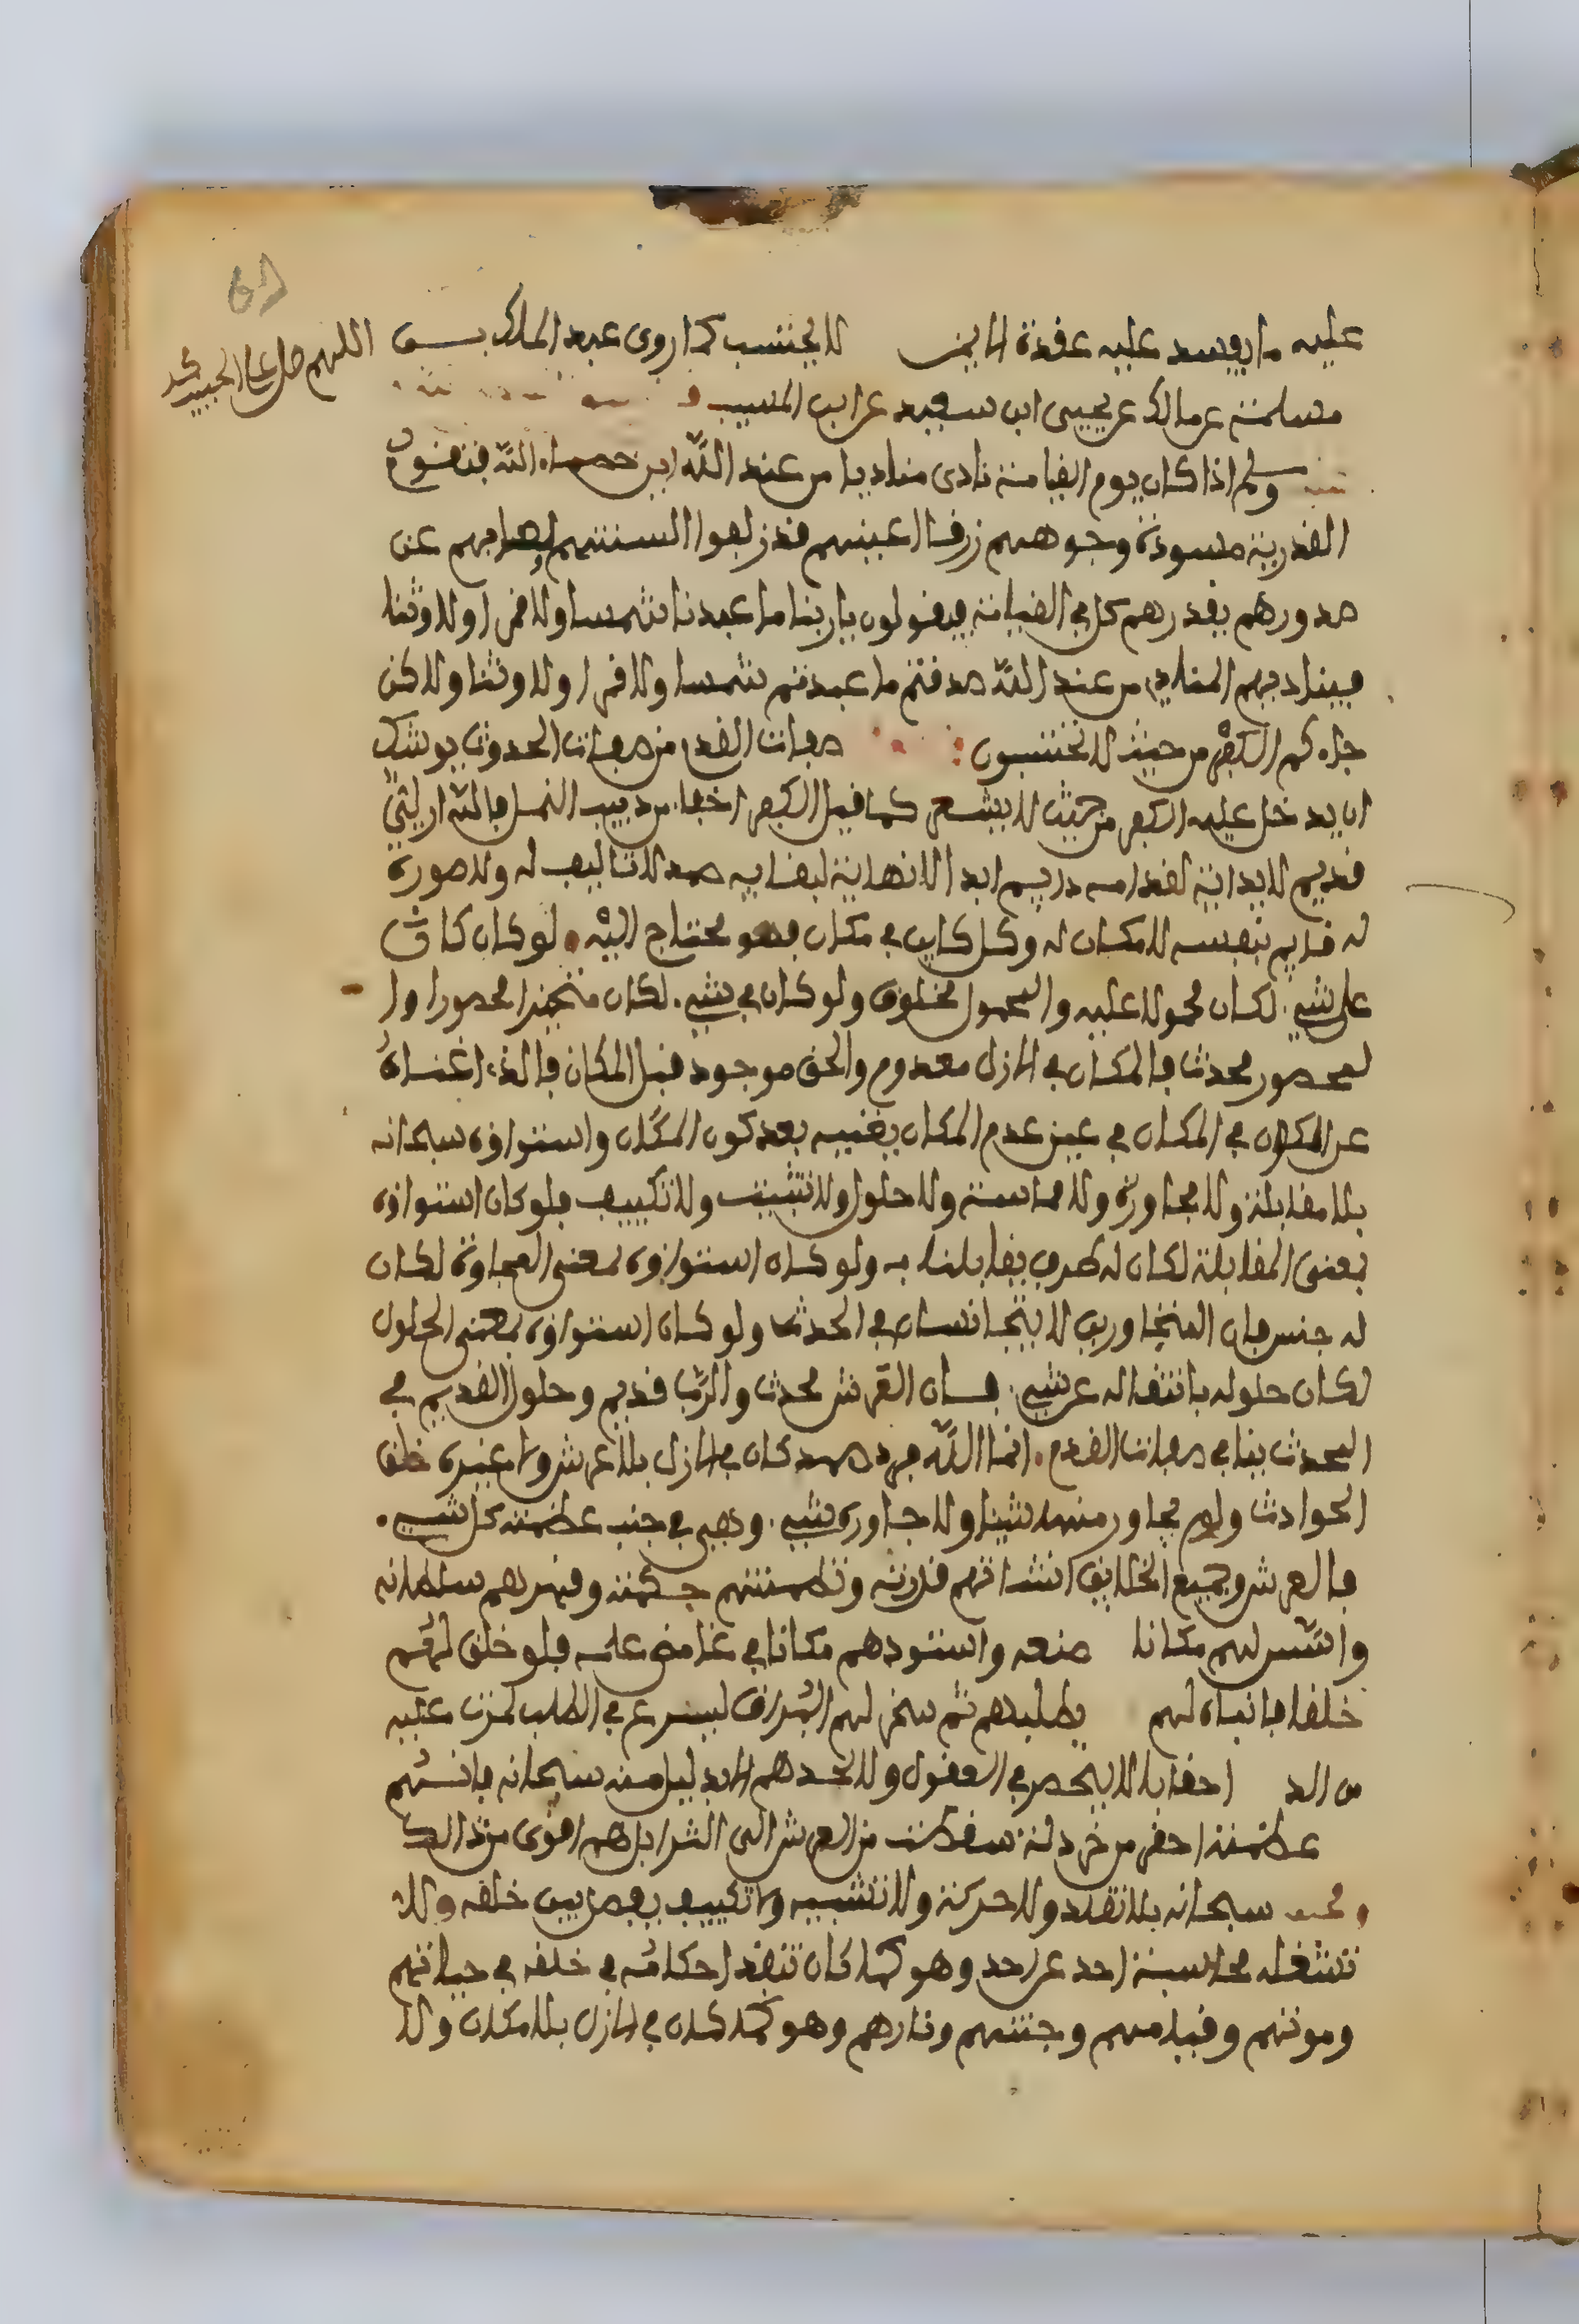 عليه ما يفسد عليه عقدة الايمن لا يحتسب كما روى عبد الملك بن
اللهم صل على الحبيب محمد
مسلمة عن مالك عن يحيى ابن سعيد عن ابن المسيب
وسلم اذا كان يوم القيامة نادى مناديا من عند الله اين خصماء الله فتقوم
القدرية مسودة وجوههم زرقا اعينهم قد زلعوا السنتهم لعابهم عن
صدورهم يقدرهم كل في القيامة فيقولون يا ربنا ما عبدنا شمسا ولا قمرا ولا وثنا
فيناديهم المنادي من عند الله صدقتم ما عبدتم شمسا ولا قمرا ولا وثنا ولاكن
جاءكم الكفر من حيث لا تحتسبون صفات القدم من صفات الحدوث يوشك
ان يدخل عليه الكفر من حيث لا يشعر كما قيل الكفر اخفا من دبيب النمل فالله ازلي
قديم لا بداية لقدامه دايم ابدا لا نهاية لبقايه صمد لا تاليف له ولا صورة
له قايم بنفسه لا مكان له وكل كاين في مكان فهو محتاج اليه لو كان كان
على شيء لكان محمولا عليه والمحمول مخلوق ولو كان في شيء لكان متحيزا محصورا وا
لمحصور محدث فالمكان في الازل معدوم والحق موجود قبل المكان فالذي اغناه
عن المكان في المكان في عين عدم المكان يغنيه بعد كون المكان واستواؤه سبحانه
بلا مقابلة ولا مجاورة ولا مماسة ولا حلول ولا تثبيت ولا تكييف فلو كان استواؤه
بمعنى المقابلة لكان له طرف يقابلنا به ولو كان استواؤه بمعنى المجاورة لكان
له جنس فان المتجاورين لا يتجانسان في الحدث ولو كان استواؤه بمعنى الحلول
لكان حلوله بانتقاله عن شيء فان العرش محدث والرب قديم وحلول القديم في
المحدث ينافي صفات القدم انما الله فرد صمد كان في الازل بلا عرش ولا غيره خلق
الحوادث ولم يجاور منها شيئا ولا جاوره شيء وفي جنب عظمته كل شيء
فالعرش وجميع الخلايق انشاتهم قدرته ونظمتهم حكمته وقهرهم سلطانه
واسس لهم مكانا صنعه واستودهم مكانا في غامض علمه فلو خلق لهم
خلقا فانباه لهم يطلبهم ثم سخر لهم البراق ليسرع في الطلب لمرت عليه
من الد احقابا لا يحصر في العقول ولا لحدهم الا بدليل منه سبحانه
عظمته احقر من خردلة سقطت من العرش الى الثرا بل هم اقوى من ذالك
سبحانه بلا تعدد ولا حركة ولا تشبيه ولا تكييف يفصل بين خلقه ولا
تشغله محاسبة احد عن احد وهو كما كان تنفد احكامه في خلقه في حياتهم
وموتهم وقيامهم وجنتهم ونارهم وهو كما كان في الازل بلا مكان ولا